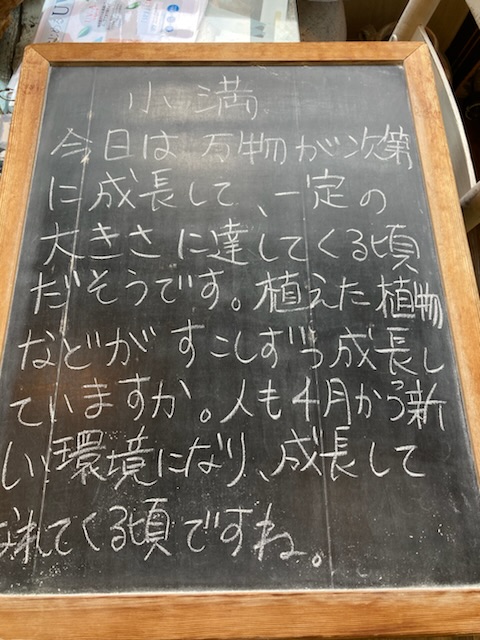 小満
今日は、万物が次第
に成長して、一定の
大きさに達してくる頃
だそうです。植えた植物
などが すこしずつ成長し
ていますか。人も4月から新
しい環境になり、成長して
なれてくる頃ですね。